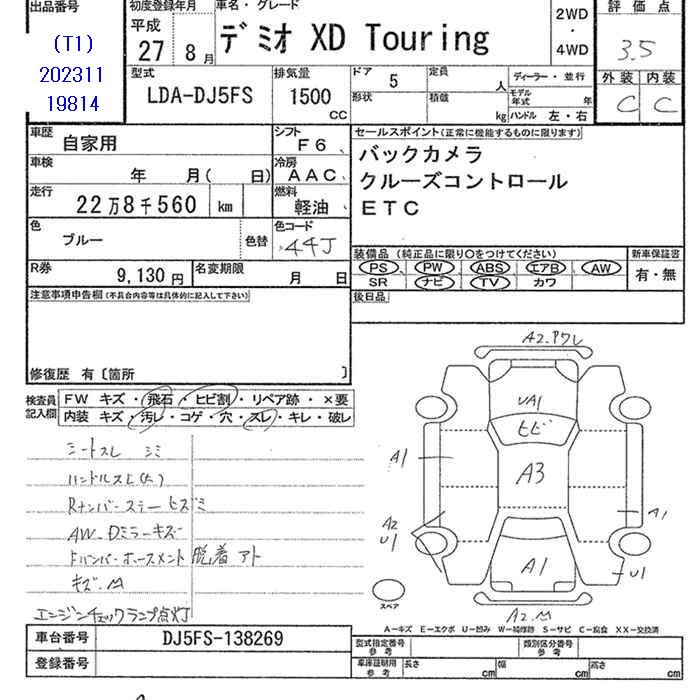 出品番号
(T1)
202311
19814
初度登録年月
平成
27 8月
車名・グレード
デミオ XD Touring
2WD
・
4WD
評価点
3.5
外装 内装
C C
型式
LDA-DJ5FS
排気量
1500
CC
ドア 5
定員 人
形状
積載 kg
ディーラー・並行
モデル年式 年
ハンドル 左・右
車歴
自家用
シフト
F6
車検
年 月( 日)
冷房
AAC
走行
22万8千560 km
燃料
軽油
色
ブルー
色替
色コード
44J
R券
9,130円
名変期限
月 日
セールスポイント(正常に機能するものに限ります)
バックカメラ
クルーズコントロール
ETC
装備品 (純正品に限り○をつけてください)
PS PW ABS エアB AW
SR ナビ TV カワ
新車保証書
有・無
後日品
注意事項申告欄(不具合内容等は具体的に記入して下さい)
修復歴 有〔箇所 〕
検査員記入欄
FW キズ・飛石・ヒビ割・リペア跡・×要
内装 キズ・汚レ・コゲ・穴・スレ・キレ・破レ
シートスレ シミ
ハンドルスレ(大)
Rナンバーステー ヒズミ
AW Dミラーキズ
Fバンパーホースメント 脱着アト
キズ
エンジンチェックランプ点灯
A2
UA1
ヒビ
A1
A3
A2
U1
A1
A1
U1
A2
スペア
A−キズ E−エクボ U−凹み W−補修跡 S−サビ C−腐食 XX−交換済
車台番号
DJ5FS-138269
登録番号
型式指定番号
参考
類別区分番号
参考
車庫証明用
参考
長さ cm
幅 cm
高さ cm